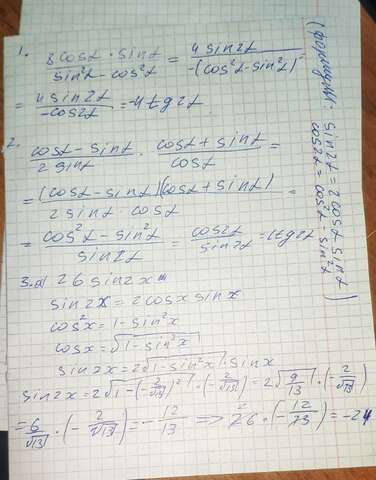 1. 8cosα · sinα / sin²α - cos²α = 4 sin2α / -(cos²α - sin²α) =
= 4 sin2α / -cos2α = -4tg2α
2. cosα - sinα / 2 sinα · cosα + sinα / cosα =
= (cosα - sinα)(cosα + sinα) / 2 sinα · cosα =
= cos²α - sin²α / sin2α = cos2α / sin2α = ctg2α
3. a) 26 sin2x
sin2x = 2cosx sinx
cos²x = 1 - sin²x
cosx = √1 - sin²x
sin2x = 2√1 - sin²x · sinx
sin2x = 2√1 - (2/√13)² · (-2/√13) = 2√9/13 · (-2/√13)
= 6/√13 · (-2/√13) = -12/13 => 26 · (-12/13) = -24
sin2α = 2cosα sinα
cos2α = cos²α - sin²α)